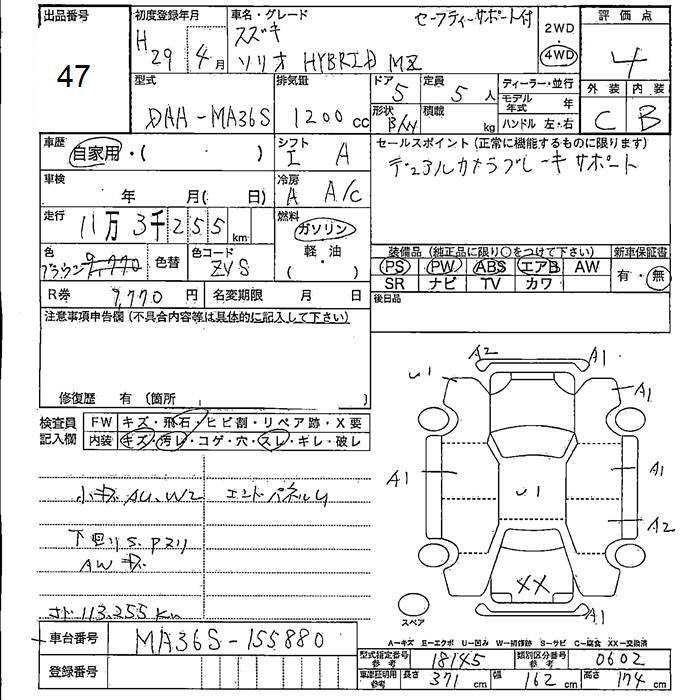 出品番号 初度登録年月 車名・グレード セーフティーサポート付 2WD 評価点
47 H29 4月 スズキ 4WD 4
ソリオ HYBRID MZ
型式 排気量 ドア 定員 ディーラー・並行 外装 内装
DAA-MA36S 1200cc 5 5人 モデル年式 年 C B
形状 積載 kg ハンドル 左・右
車歴 自家用・( ) シフト I A セールスポイント (正常に機能するものに限ります)
車検 年 月( 日) 冷房 A A/C デュアルカメラブレーキサポート
走行 11万3千255km 燃料 ガソリン
軽・油
( )
色 ブラウン 色替 色コード ZVS 装備品 (純正品に限り○をつけて下さい) 新車保証書
PS PW ABS エアB AW 有・無
R券 9,770円 名変期限 月 日 SR ナビ TV カワ
注意事項申告欄 (不具合内容等は具体的に記入して下さい) 後日品
修復歴 有 (箇所 )
検査員記入欄 FW キズ・飛石・ヒビ割・リペア跡・X要
内装 キズ・汚レ・コゲ・穴・スレ・キレ・破レ
小キズ AU、W2 エンドパネルU
下回りS、Pスリ
AWキズ
113,255km
A2 A1
U1 A1
A1 U1 A1
A2
XX
A1
スペア
A-キズ E-エクボ U-凹み W-補修跡 S-サビ C-腐食 XX-交換済
車台番号 MA36S-155880
型式指定番号 参考 18145 類別区分番号 参考 0602
登録番号 車庫証明用 参考 長さ 371cm 幅 162cm 高さ 174cm